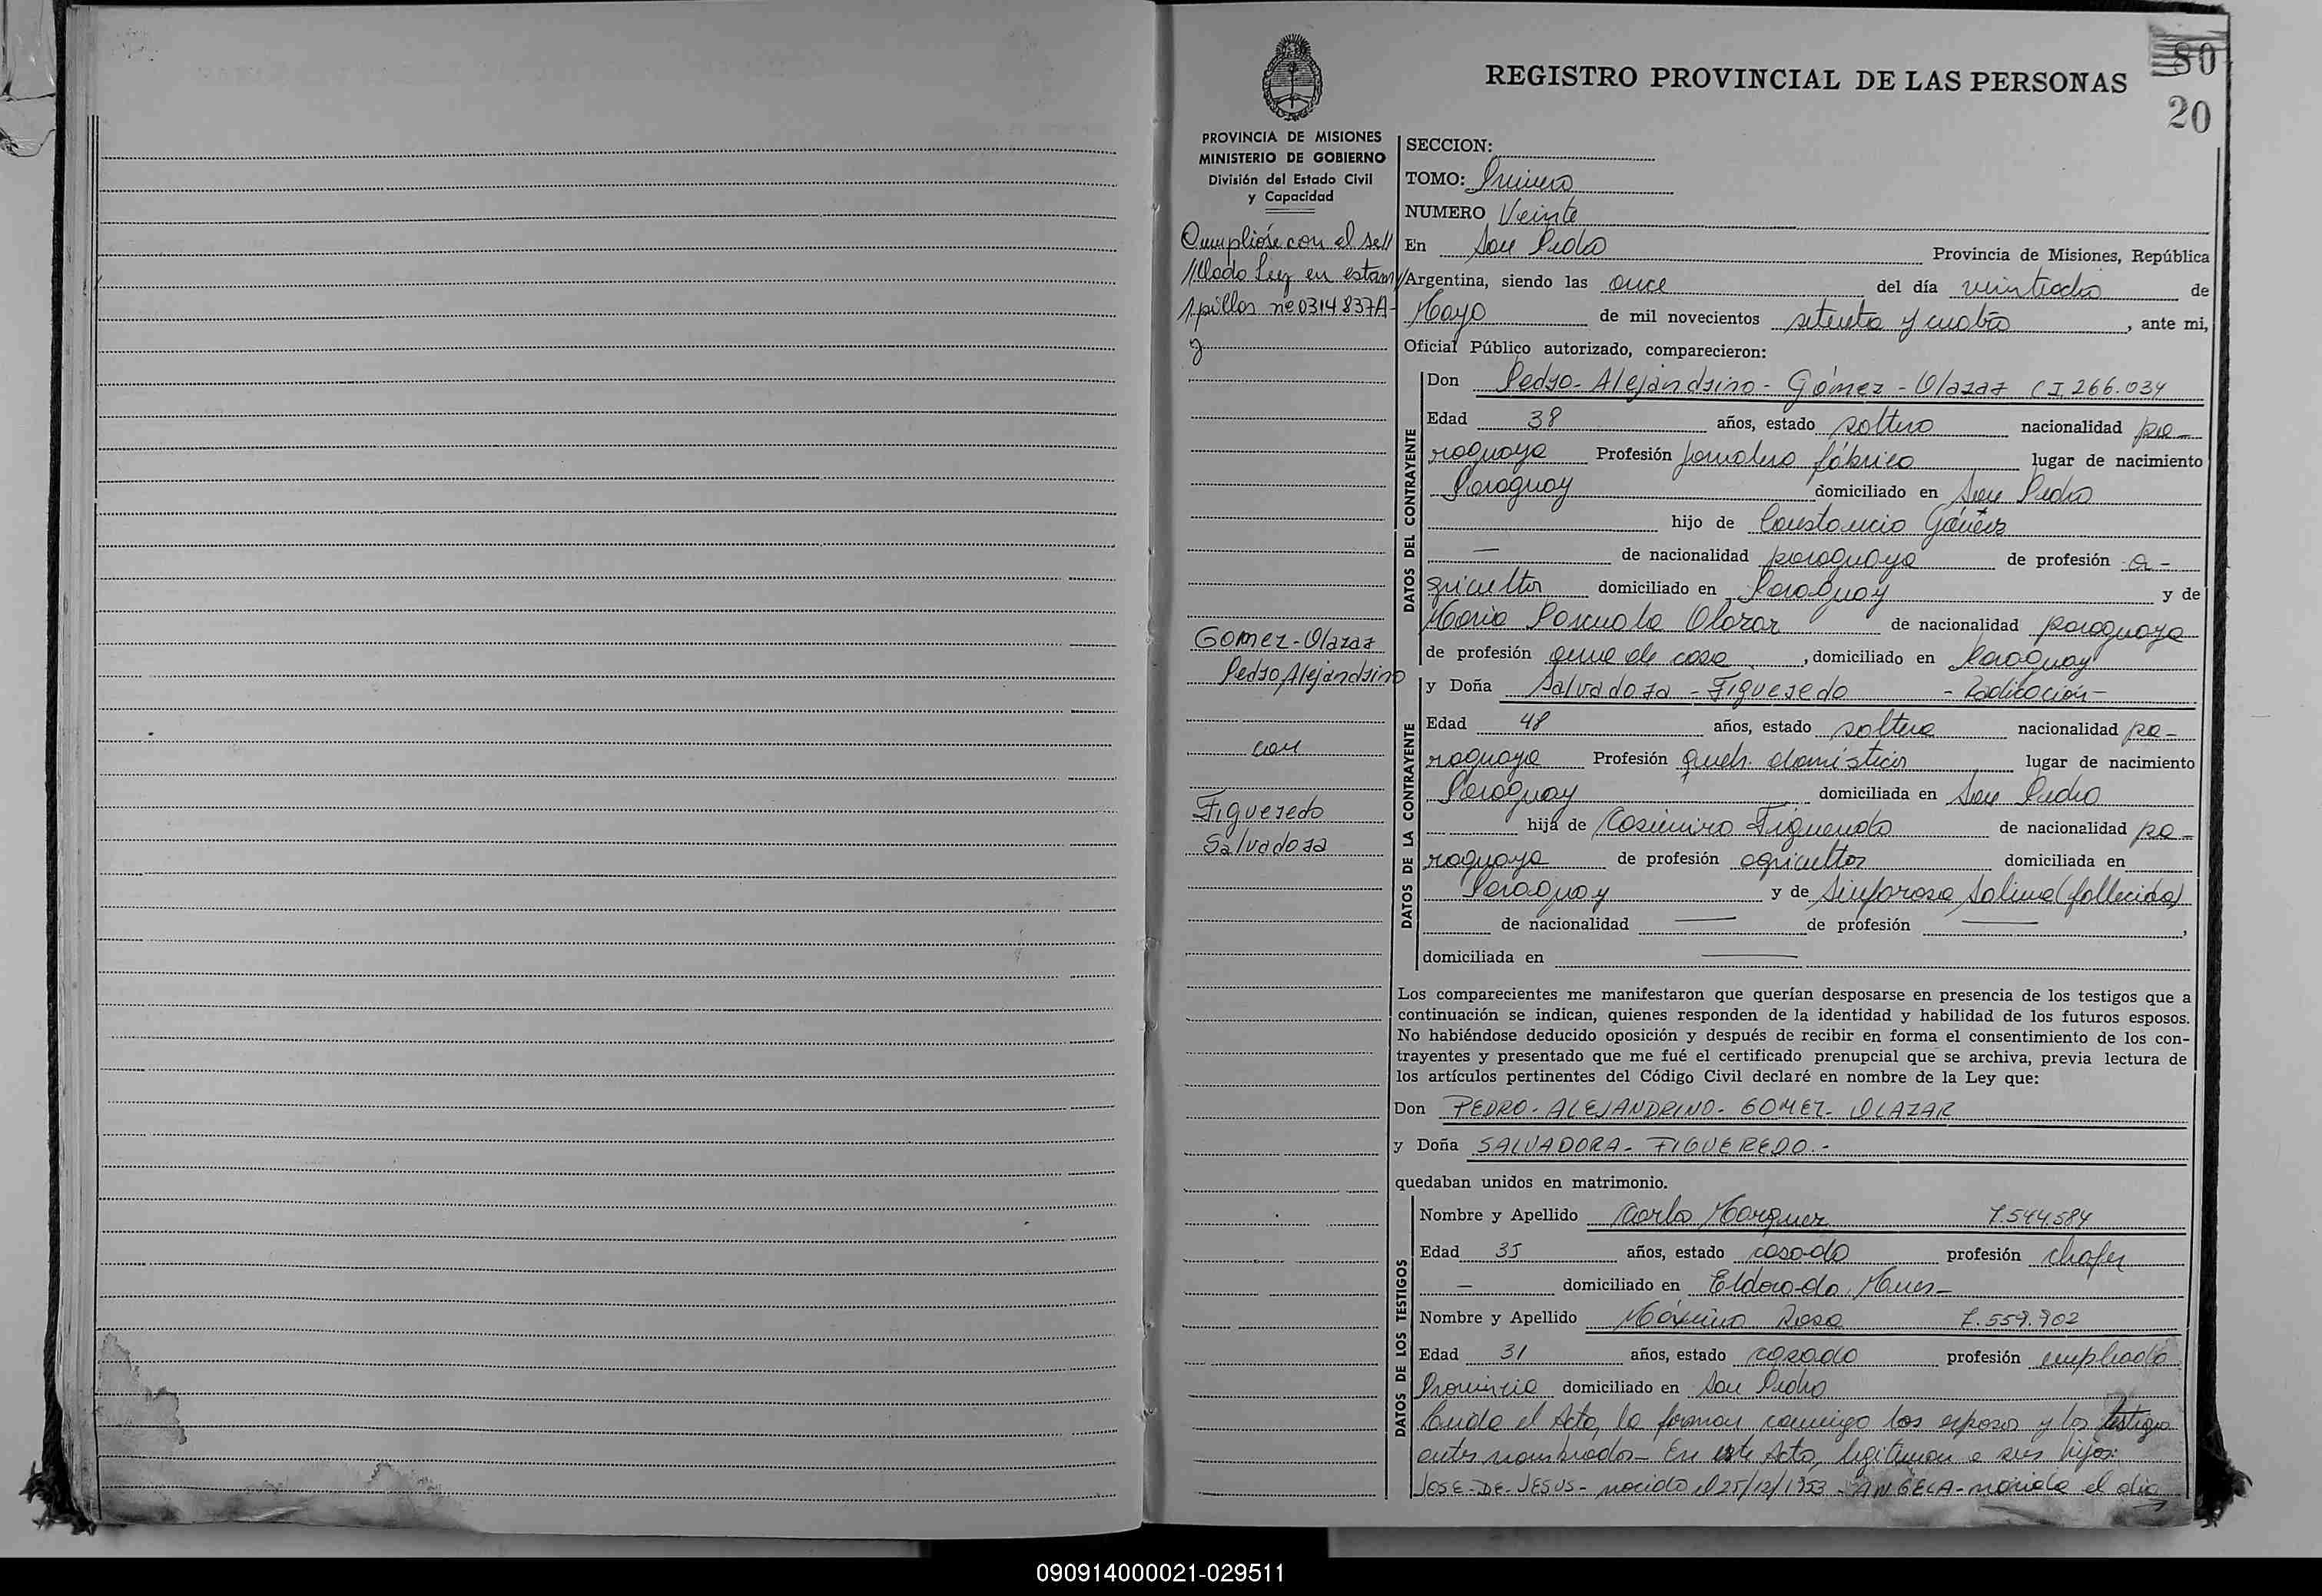 80
20
REGISTRO PROVINCIAL DE LAS PERSONAS
PROVINCIA DE MISIONES
MINISTERIO DE GOBIERNO
División del Estado Civil
y Capacidad
Cumplióse con el sell
//llado Ley en estam/
/pillas nº 0314837A-
y
Gomez-Olazar
Pedro, Alejandrino
con
Figueredo
Salvadora
SECCION:
TOMO: Primero
NUMERO Veinte
En San Pedro Provincia de Misiones, República
Argentina, siendo las once del día veintiocho de
Mayo de mil novecientos setenta y cuatro, ante mi,
Oficial Público autorizado, comparecieron:
DATOS DEL CONTRAYENTE
Don Pedro-Alejandrino-Gómez-Olazar C I. 266.034
Edad 38 años, estado soltero nacionalidad pa-
raguaya Profesión jornalero fábrica lugar de nacimiento
Paraguay domiciliado en San Pedro
hijo de Constancio Gómez
— de nacionalidad paraguaya de profesión a-
gricultor domiciliado en Paraguay y de
María Pascuala Olazar de nacionalidad paraguaya
de profesión ama de casa, domiciliado en Paraguay
DATOS DE LA CONTRAYENTE
y Doña Salvadora-Figueredo -Radicación-
Edad 48 años, estado soltera nacionalidad pa-
raguaya Profesión queh. domésticos lugar de nacimiento
Paraguay domiciliada en San Pedro
hija de Casimiro Figueredo de nacionalidad pa-
raguaya de profesión agricultor domiciliada en
Paraguay y de Sinforosa Salina (fallecida)
de nacionalidad — de profesión —,
domiciliada en —
Los comparecientes me manifestaron que querían desposarse en presencia de los testigos que a
continuación se indican, quienes responden de la identidad y habilidad de los futuros esposos.
No habiéndose deducido oposición y después de recibir en forma el consentimiento de los con-
trayentes y presentado que me fué el certificado prenupcial que se archiva, previa lectura de
los artículos pertinentes del Código Civil declaré en nombre de la Ley que:
Don PEDRO-ALEJANDRINO-GOMEZ-OLAZAR
y Doña SALVADORA-FIGUEREDO.-
quedaban unidos en matrimonio.
DATOS DE LOS TESTIGOS
Nombre y Apellido Carlo Marquez 7.544.584
Edad 35 años, estado casado profesión chofer
— domiciliado en Eldorado, Mnes-
Nombre y Apellido Máximo Rosa 7.559.902
Edad 31 años, estado casado profesión empleado
Provincia domiciliado en San Pedro
Leida el Acta, la firman conmigo los esposos y los testigos
antes nombrados- En este Acto, legitiman a sus hijos:
JOSE-DE-JESUS- nacido el 25/12/1953 -ANGELA- nacida el día
090914000021-029511